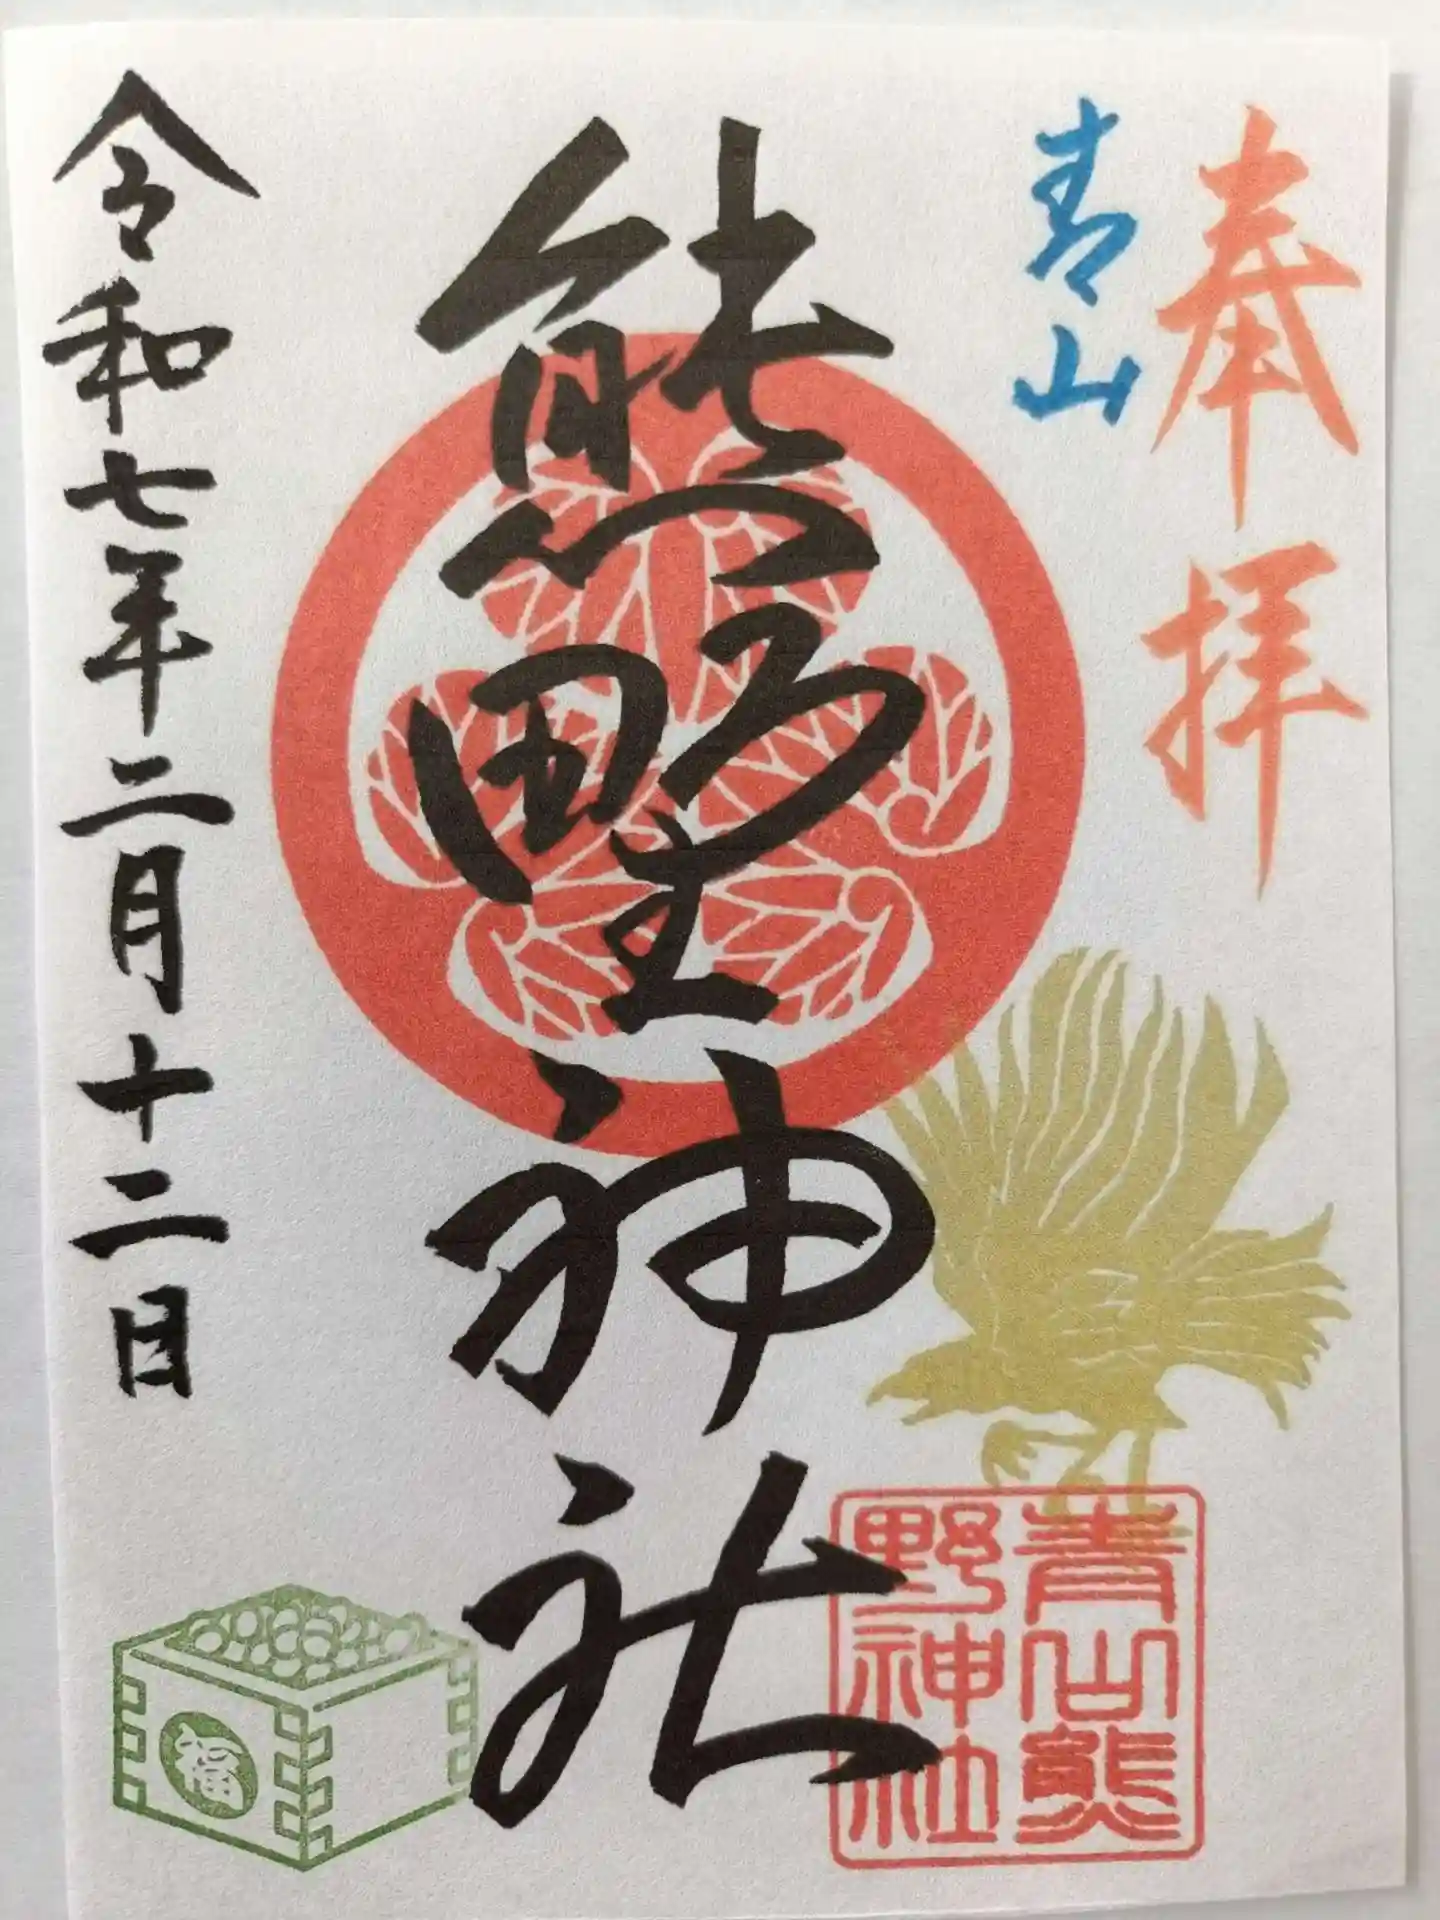 奉拝
青山
熊野神社
令和七年二月十二日
福
青山熊
野神社